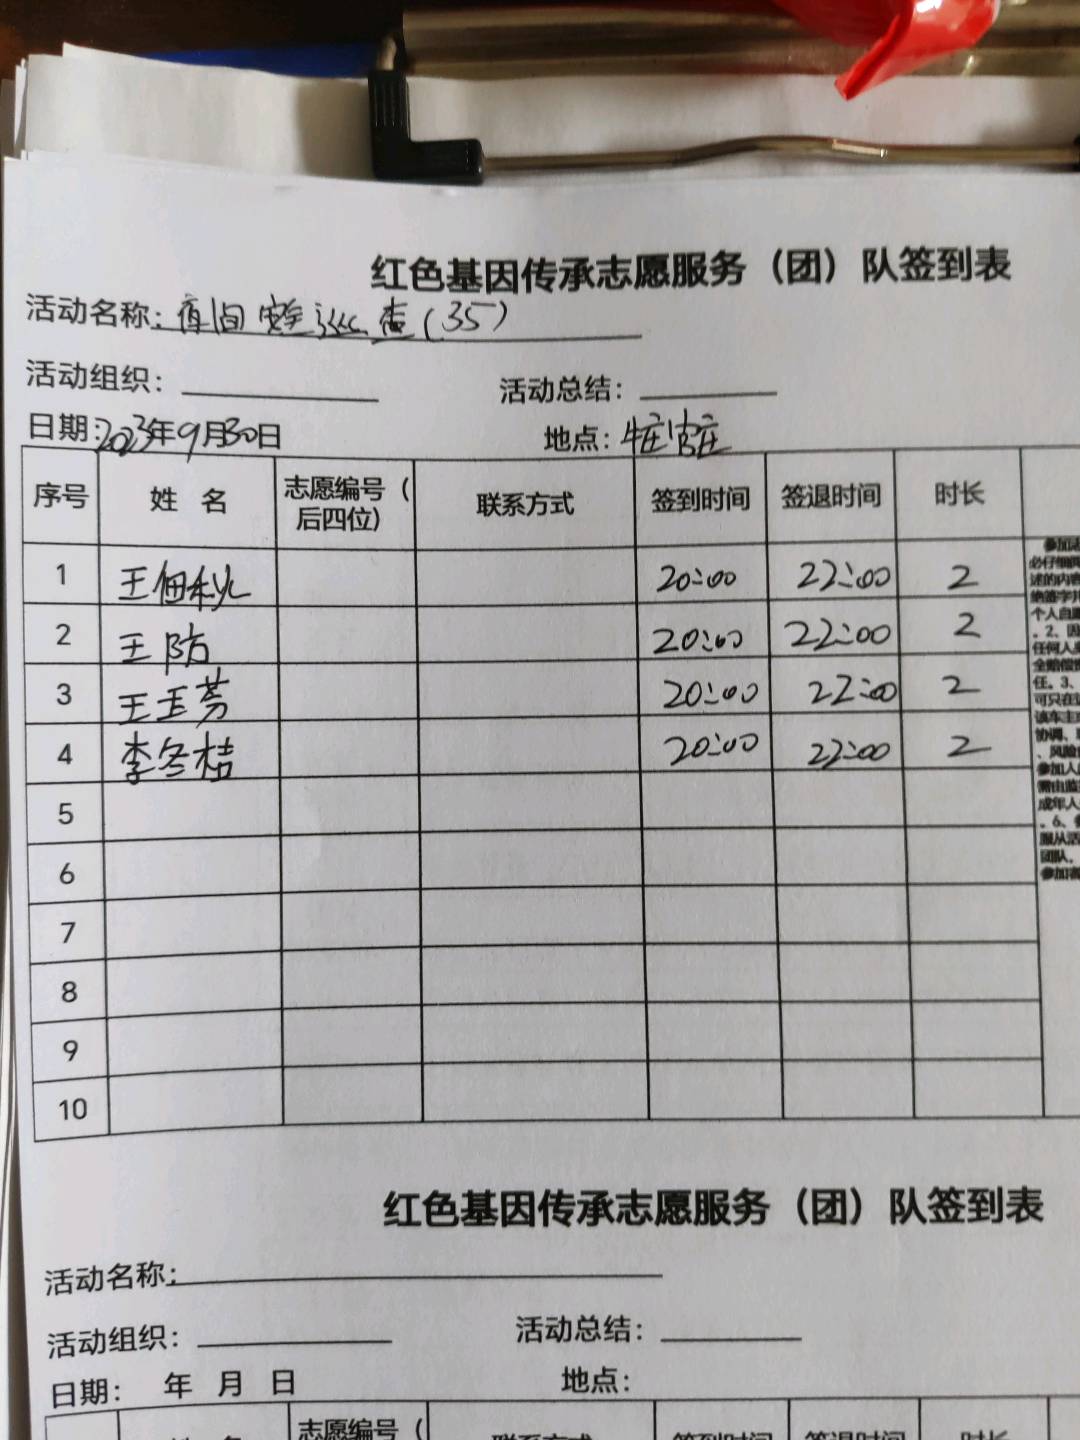 红色基因传承志愿服务（团）队签到表
活动名称：夜间安全巡查（35）
活动组织：
活动总结：
日期：2023年9月30日
地点：官庄
序号 姓 名 志愿编号（后四位） 联系方式 签到时间 签退时间 时长
1 王 20:00 22:00 2
2 王防 20:00 22:00 2
3 王玉芳 20:00 22:00 2
4 李冬桔 20:00 22:00 2
5
6
7
8
9
10
必仔细
述的内容
绝签字
个人自
。2、因
任何人
全赔偿
任。3、
可只在
该车主
协调、
、风险
参加人
需由监
成年人
。6、
服从活
团队，
参加者
红色基因传承志愿服务（团）队签到表
活动名称：
活动组织：
活动总结：
日期： 年 月 日
地点：
姓 名 志愿编号（ 联系方式 签到时间 签退时间 时长